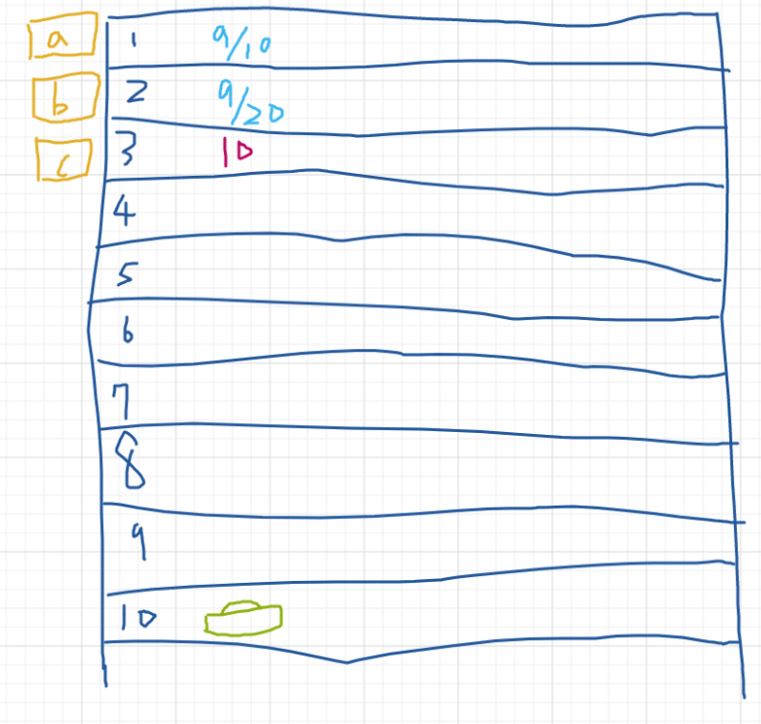 a 1 9/10
b 2 9/20
c 3 10
4
5
6
7
8
9
10